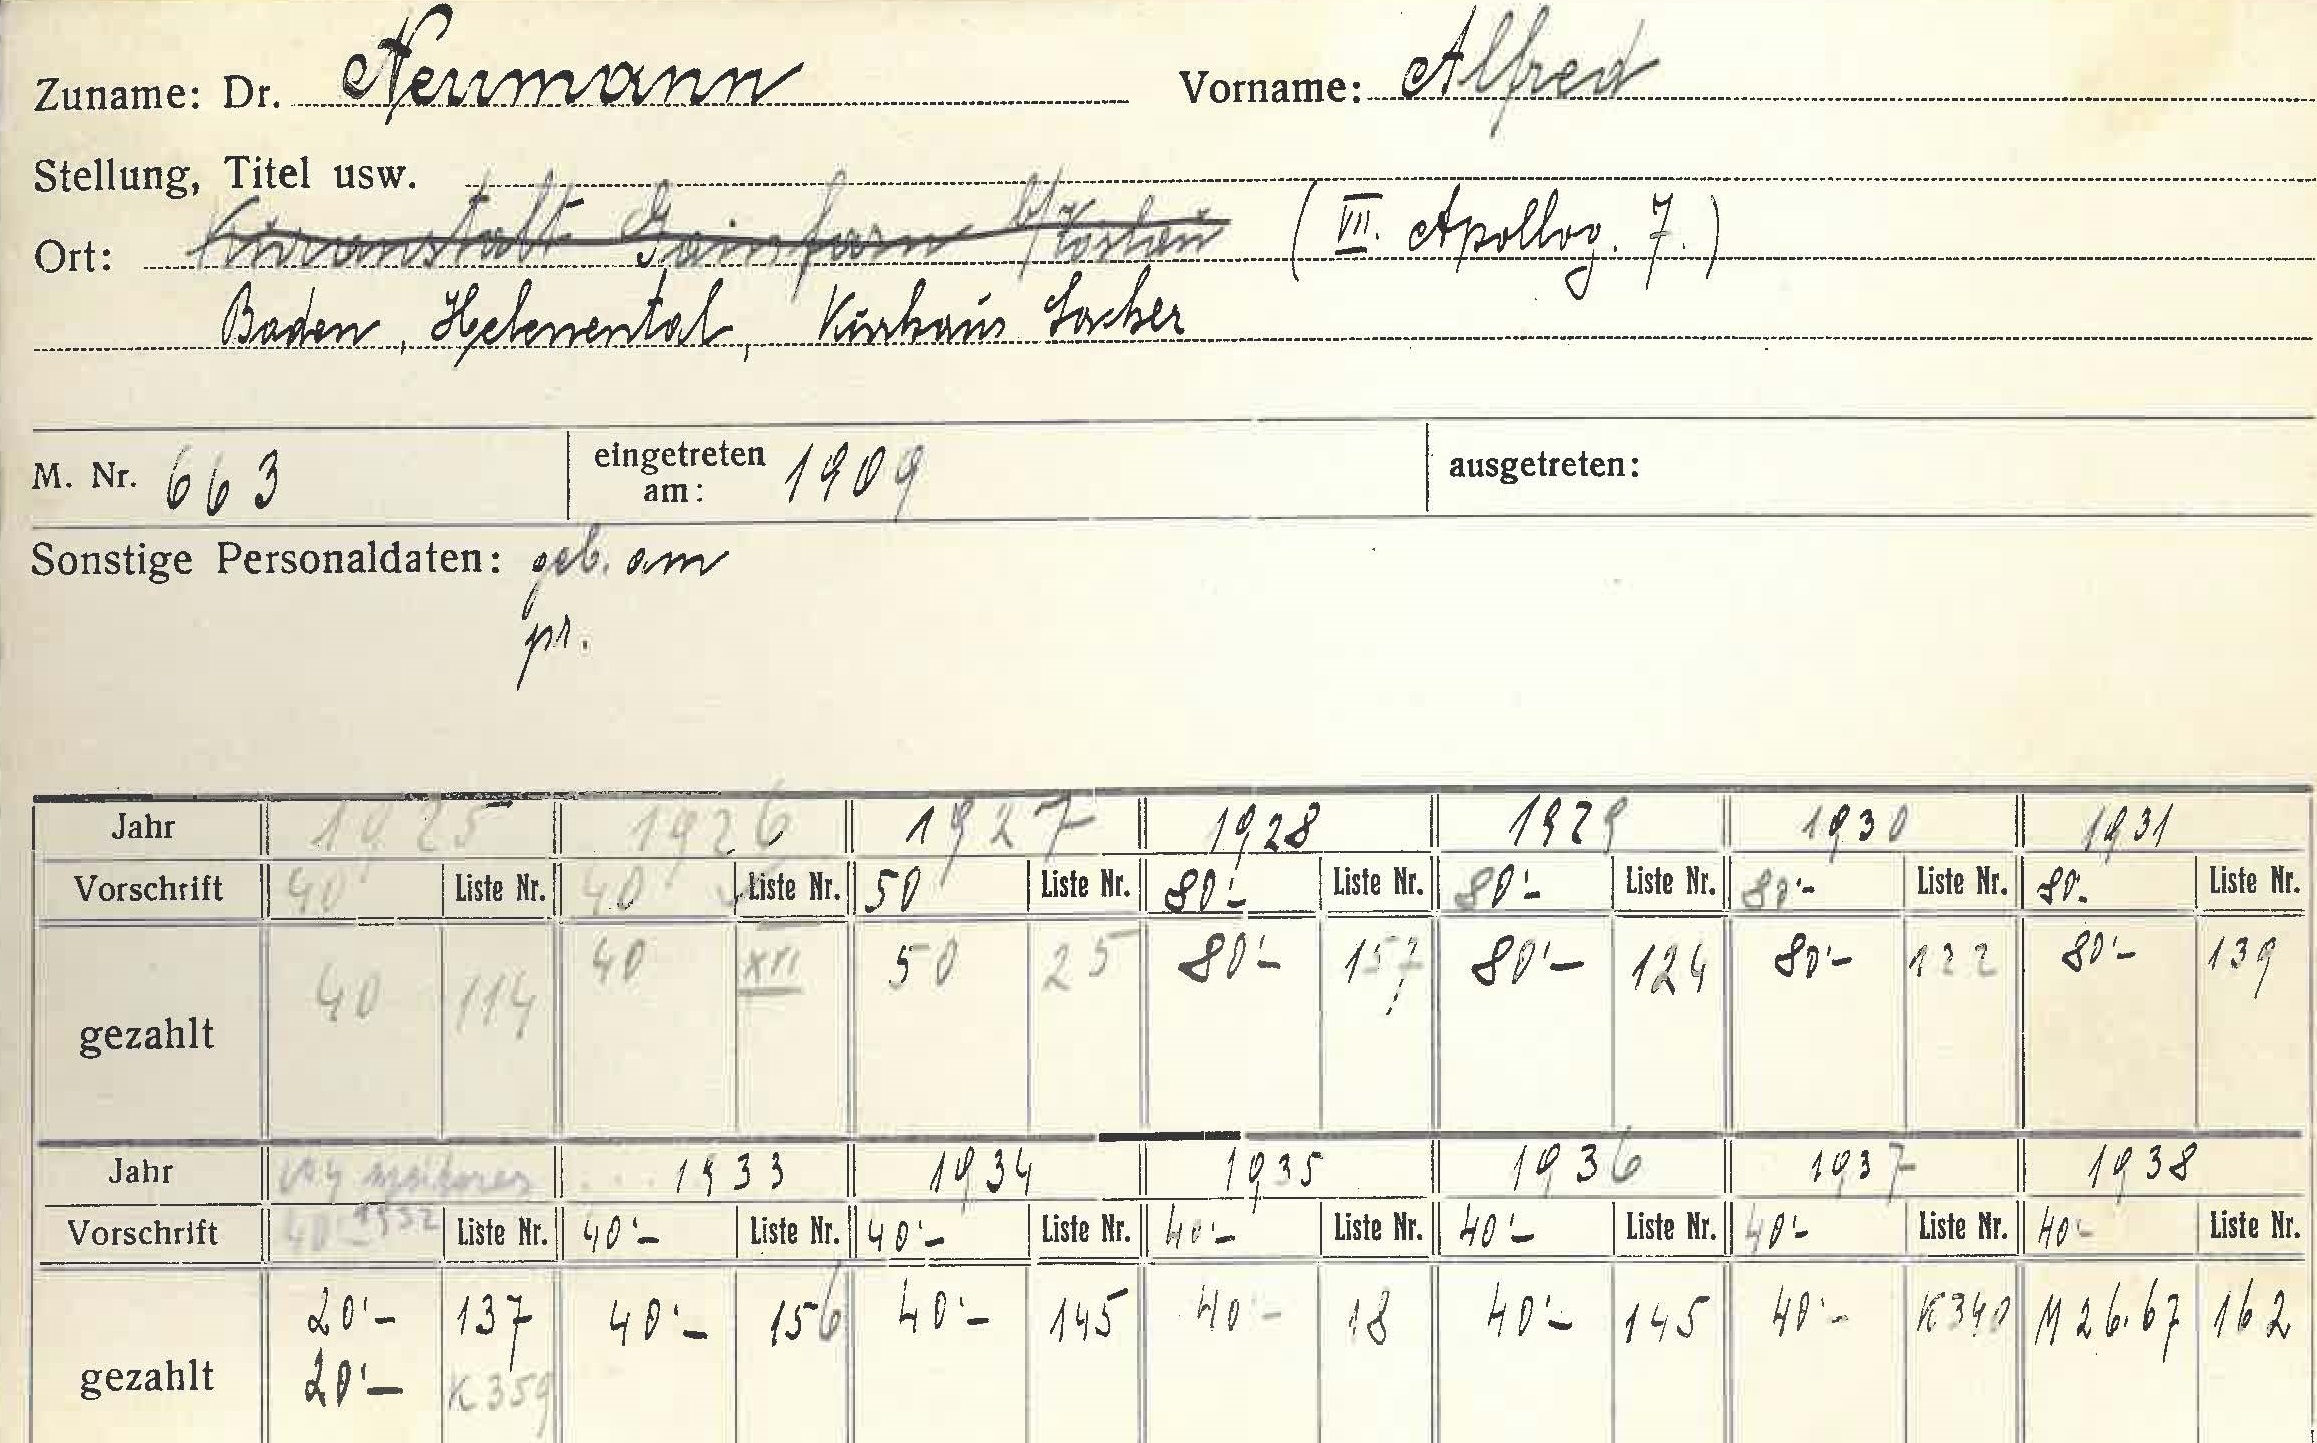 Zuname: Dr. Neumann Vorname: Alfred
Stellung, Titel usw.
Ort: Kuranstalt Gainfarn b/Vöslau (VII. Apollog. 7.)
Baden, Helenental, Kurhaus Sacher
M. Nr. 663 eingetreten am: 1909 ausgetreten:
Sonstige Personaldaten: geb. am
pr.
Jahr 1925 1926 1927 1928 1929 1930 1931
Vorschrift 40 Liste Nr. 40 Liste Nr. 50 Liste Nr. 80'- Liste Nr. 80'- Liste Nr. 80'- Liste Nr. 80.- Liste Nr.
gezahlt 40 114 40 XVI 50 25 80'- 157 80'- 124 80'- 122 80'- 139
Jahr 1933 1934 1935 1936 1937 1938
Vorschrift 40'- 1932 Liste Nr. 40'- Liste Nr. 40'- Liste Nr. 40'- Liste Nr. 40'- Liste Nr. 40'- Liste Nr. 40'- Liste Nr.
gezahlt 20'- 137 40'- 156 40'- 145 40'- 18 40'- 145 40'- K340 M 26.67 162
20'- K359